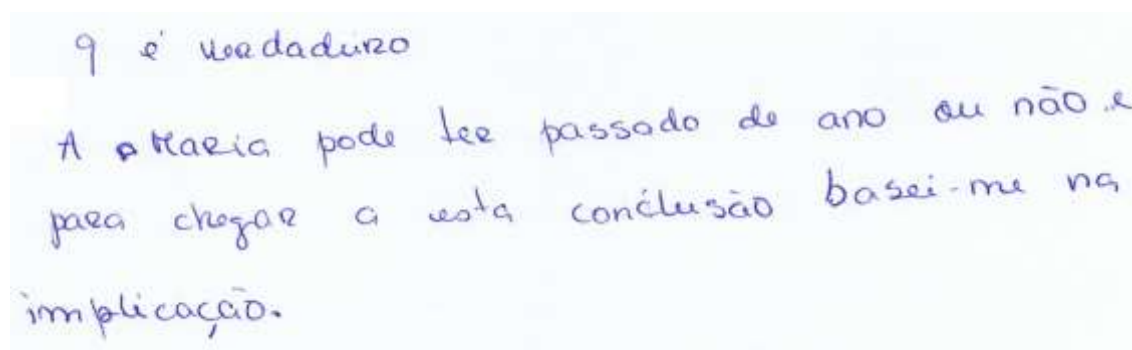 q é verdadeiro
A Maria pode ter passado de ano ou não e
para chegar a esta conclusão basei-me na
implicação.